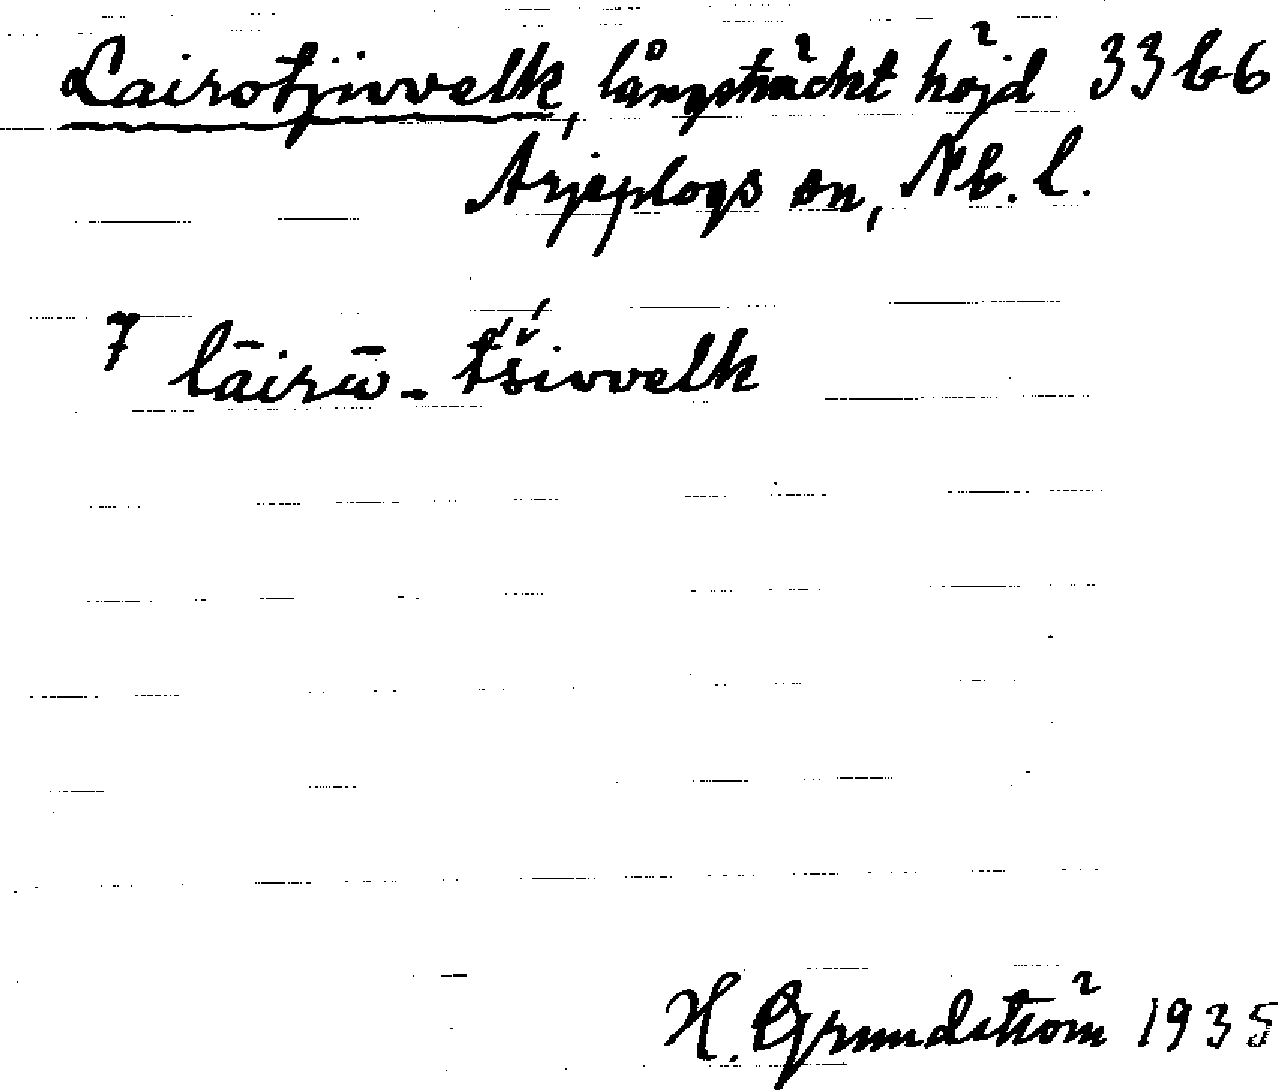 Lairotjivvelk, långsträckt höjd 33 b 6
Arjeplogs sn, Nb. l.
7 lāirω̄- t́š́ivvelk
H. Grundström 1935